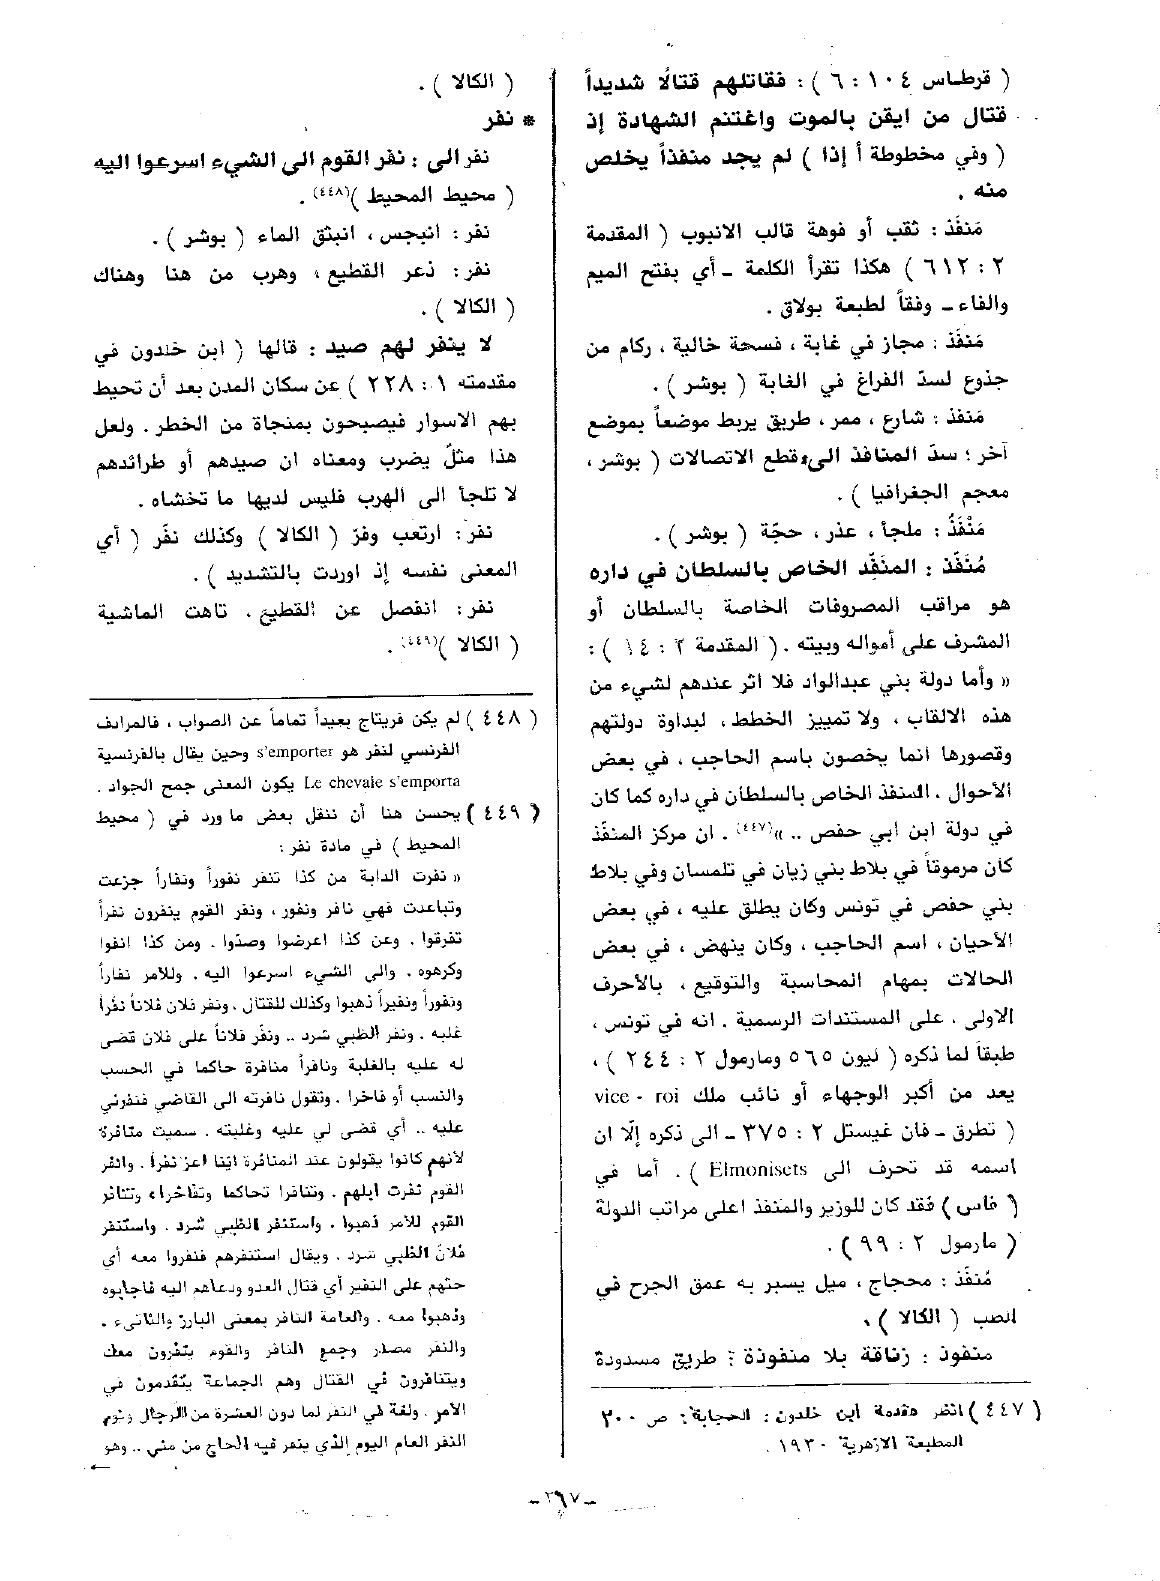 ( قرطاس ١٠٤ : ٦ ) : فقاتلهم قتالًا شديداً
قتال من ايقن بالموت واغتنم الشهادة إذ
( وفي مخطوطة أ إذا ) لم يجد منفذاً يخلص
منه .
مَنفَذ : ثقب أو فوهة قالب الانبوب ( المقدمة
٢ : ٦١٢ ) هكذا تقرأ الكلمة ـ أي بفتح الميم
والفاء ـ وفقاً لطبعة بولاق .
مَنفَذ : مجاز في غابة ، فسحة خالية ، ركام من
جذوع لسدّ الفراغ في الغابة ( بوشر ) .
مَنفذ : شارع ، ممر ، طريق يربط موضعاً بموضع
آخر ؛ سدّ المنافذ الى، قطع الاتصالات ( بوشر ،
معجم الجغرافيا ) .
مَنْفَذُ : ملجأ ، عذر ، حجّة ( بوشر ) .
مُنَفّذ : المنَفِّذ الخاص بالسلطان في داره
هو مراقب المصروفات الخاصة بالسلطان أو
المشرف على أمواله وبيته . ( المقدمة ٢ : ١٤ ) :
« وأما دولة بني عبدالواد فلا اثر عندهم لشيء من
هذه الالقاب ، ولا تمييز الخطط ، لبداوة دولتهم
وقصورها انما يخصون باسم الحاجب ، في بعض
الأحوال ، المنفذ الخاص بالسلطان في داره كما كان
في دولة ابن ابي حفص .. »(٤٤٧) . ان مركز المنفّذ
كان مرموقاً في بلاط بني زيان في تلمسان وفي بلاط
بني حفص في تونس وكان يطلق عليه ، في بعض
الأحيان ، اسم الحاجب ، وكان ينهض ، في بعض
الحالات بمهام المحاسبة والتوقيع ، بالأحرف
الاولى ، على المستندات الرسمية . انه في تونس ،
طبقاً لما ذكره ( ليون ٥٦٥ ومارمول ٢ : ٢٤٤ ) ،
يعد من أكبر الوجهاء أو نائب ملك vice - roi
( تطرق ـ فان غيستل ٢ : ٣٧٥ ـ الى ذكره إلّا ان
اسمه قد تحرف الى Elmonisets ) . أما في
( فاس ) فقد كان للوزير والمنفذ اعلى مراتب الدولة
( مارمول ٢ : ٩٩ ) .
مُنفَذ : محجاج ، ميل يسبر به عمق الجرح في
الطب ( الكالا ) .
منفوذ : زناقة بلا منفوذة : طريق مسدودة
( ٤٤٧ ) انظر مقدمة ابن خلدون : الحجابة : ص ٢٠٠
المطبعة الازهرية ١٩٣٠ .
( الكالا ) .
* نفر
نفر الى : نفر القوم الى الشيء اسرعوا اليه
( محيط المحيط )(٤٤٨) .
نفر : انبجس ، انبثق الماء ( بوشر ) .
نفر : ذعر القطيع ، وهرب من هنا وهناك
( الكالا ) .
لا ينفر لهم صيد : قالها ( ابن خلدون في
مقدمته ١ : ٢٢٨ ) عن سكان المدن بعد أن تحيط
بهم الاسوار فيصبحون بمنجاة من الخطر . ولعل
هذا مثلٌ يضرب ومعناه ان صيدهم أو طرائدهم
لا تلجأ الى الهرب فليس لديها ما تخشاه .
نفر : ارتعب وفرّ ( الكالا ) وكذلك نفّر ( أي
المعنى نفسه إذ اوردت بالتشديد ) .
نفر : انفصل عن القطيع ، تاهت الماشية
( الكالا )(٤٤٩) .
( ٤٤٨ ) لم يكن فريتاج بعيداً تماماً عن الصواب ، فالمرادف
الفرنسي لنفر هو s'emporter وحين يقال بالفرنسية
Le chevale s'emporta يكون المعنى جمح الجواد .
( ٤٤٩ ) يحسن هنا أن ننقل بعض ما ورد في ( محيط
المحيط ) في مادة نفر :
« نفرت الدابة من كذا تنفر نفوراً ونفاراً جزعت
وتباعدت فهي نافر ونفور ، ونفر القوم ينفرون نفراً
تفرقوا . وعن كذا اعرضوا وصدّوا . ومن كذا انفوا
وكرهوه . والى الشيء اسرعوا اليه . وللأمر نفاراً
ونفوراً ونفيراً ذهبوا وكذلك للقتال . ونفر فلان فلاناً نفراً
غلبه . ونفر الظبي شرد .. ونفّر فلاناً على فلان قضى
له عليه بالغلبة ونافراً منافرة حاكما في الحسب
والنسب أو فاخرا . وتقول نافرته الى القاضي فنفرني
عليه .. أي قضى لي عليه وغلبته . سميت منافرة
لأنهم كانوا يقولون عند المنافرة ايّنا اعز نفراً . وانفر
القوم نفرت ابلهم . وتنافرا تحاكما وتفاخراء وتنافر
القوم للأمر ذهبوا . واستنفر الظبي شرد . واستنفر
فلان الظبي شرد . ويقال استنفرهم فنفروا معه أي
حثهم على النفير أي قتال العدو ودعاهم اليه فاجابوه
وذهبوا معه . والعامة النافر بمعنى البارز والناتىء .
والنفر مصدر وجمع النافر والقوم ينفرون معك
ويتنافرون في القتال وهم الجماعة يتقدمون في
الأمر . ولغة في النفر لما دون العشرة من الرجال ويوم
النفر العام اليوم الذي ينفر فيه الحاج من منى .. وهو
←
ـ ٢٦٧ ـ